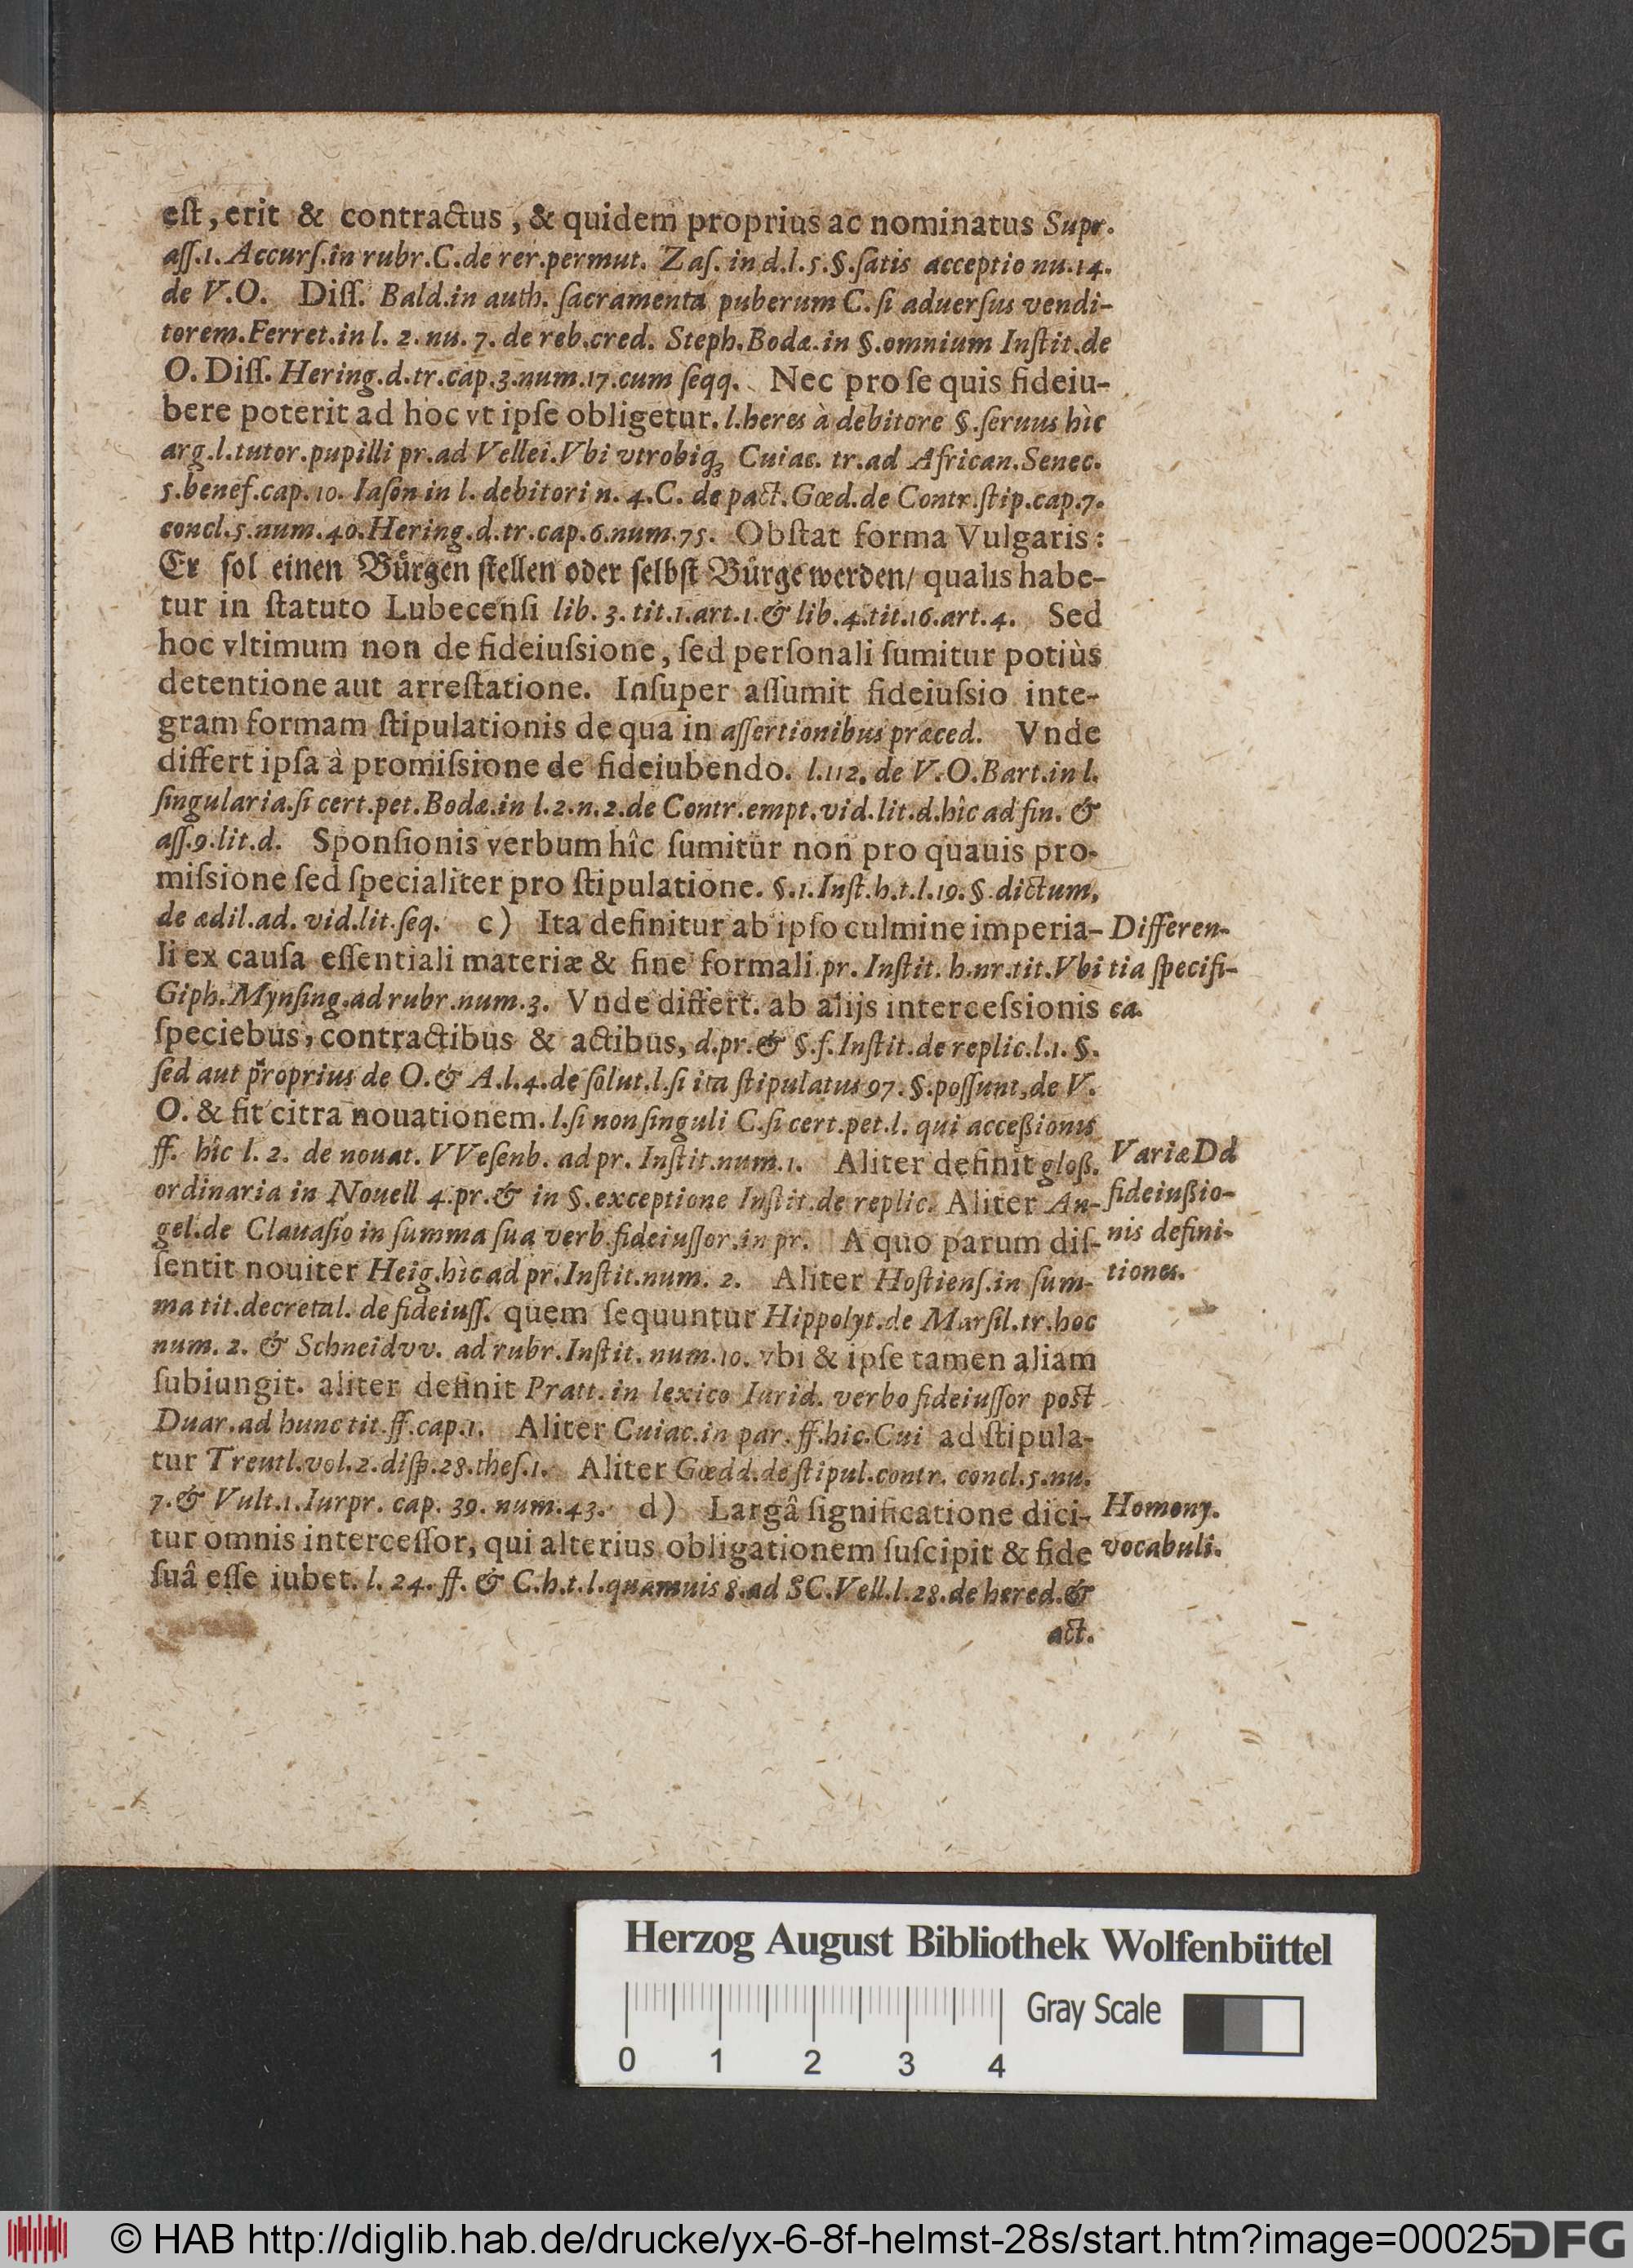 est, erit & contractus, & quidem proprius ac nominatus Supr.
aſſ.1. Accurſ.in rubr.C.de rer.permut. Zaſ. in d.l.5.§.ſatis acceptio nu.14.
de V.O. Diſſ. Bald.in auth. ſacramenta puberum C. ſi aduerſus vendi-
torem.Ferret.in l. 2. nu. 7. de reb.cred. Steph.Bodæ.in §.omnium Inſtit.de
O. Diſſ. Hering.d.tr.cap.3.num.17.cum ſeqq. Nec pro ſe quis fideiu-
bere poterit ad hoc vt ipſe obligetur. l.heres à debitore §.ſeruus hìc
arg.l.tutor.pupilli pr.ad Vellei.Vbi vtrobiq; Cuiac. tr.ad African.Senec.
5.benef.cap.10. Iaſon in l. debitori n. 4.C. de pact.Gœd.de Contr.ſtip.cap.7.
concl.5.num.40.Hering.d.tr.cap.6.num.75. Obſtat forma Vulgaris:
Er ſol einen Bürgen ſtellen oder ſelbſt Bürge werden/ qualis habe-
tur in ſtatuto Lubecenſi lib. 3. tit.1.art.1.& lib.4.tit.16.art.4. Sed
hoc vltimum non de fideiuſsione, ſed perſonali ſumitur potiùs
detentione aut arreſtatione. Inſuper aſſumit fideiuſsio inte-
gram formam ſtipulationis de qua in aſſertionibus præced. Vnde
differt ipſa à promiſsione de fideiubendo. l.112. de V.O.Bart.in l.
ſingularia.ſi cert.pet.Bodæ.in l.2.n.2.de Contr.empt.vid.lit.d.hîc ad fin. &
aſſ.9.lit.d. Sponſionis verbum hîc ſumitur non pro quauis pro-
miſsione ſed ſpecialiter pro ſtipulatione. §.1.Inſt.h.t.l.19.§.dictum,
de ædil.ad. vid.lit.ſeq. c) Ita definitur ab ipſo culmine imperia-
Differen-
li ex cauſa eſſentiali materiæ & fine formali pr. Inſtit. h.nr.tit.Vbi
tia ſpecifi-
Giph.Mynſing.ad rubr.num.3. Vnde differt. ab alijs interceſsionis
ca.
ſpeciebus, contractibus & actibus, d.pr.& §.f.Inſtit.de replic.l.1.§.
ſed aut proprius de O.& A.l.4.de ſolut.l.ſi ita ſtipulatus 97.§.poſſunt,de V.
O. & fit citra nouationem. l.ſi non ſinguli C.ſi cert.pet.l. qui acceßionis
ff. hîc l. 2. de nouat. VVeſenb. ad pr. Inſtit.num.1. Aliter definit gloß.
Variæ Dd
ordinaria in Nouell 4.pr.& in §.exceptione Inſtit.de replic. Aliter An-
fideiußio-
gel.de Clauaſio in ſumma ſua verb.fideiuſſor.in pr. A quo parum diſ-
nis defini-
ſentit nouiter Heig.hìc ad pr.Inſtit.num. 2. Aliter Hoſtienſ.in ſum-
tiones.
ma tit.decretal. de fideiuſſ. quem ſequuntur Hippolyt.de Marſil.tr.hoc
num. 2. & Schneidvv. ad rubr.Inſtit. num.10. vbi & ipſe tamen aliam
ſubiungit. aliter definit Pratt. in lexico Iurid. verbo fideiuſſor post
Duar.ad hunc tit.ff.cap.1. Aliter Cuiac.in par. ff.hic.Cui ad ſtipula-
tur Treutl.vol.2.diſp.28.theſ.1. Aliter Gœdd.de ſtipul.contr. concl.5.nu.
7.& Vult.1.Iurpr. cap. 39. num.43. d) Largâ ſignificatione dici-
Homony.
tur omnis interceſſor, qui alterius obligationem ſuſcipit & fide
vocabuli.
ſuâ eſſe iubet. l. 24. ff. & C.h.t.l.quamuis 8.ad SC.Vell.l.28.de hered.&
act.
Herzog August Bibliothek Wolfenbüttel
Gray Scale
0 1 2 3 4
© HAB http://diglib.hab.de/drucke/yx-6-8f-helmst-28s/start.htm?image=00025
DFG